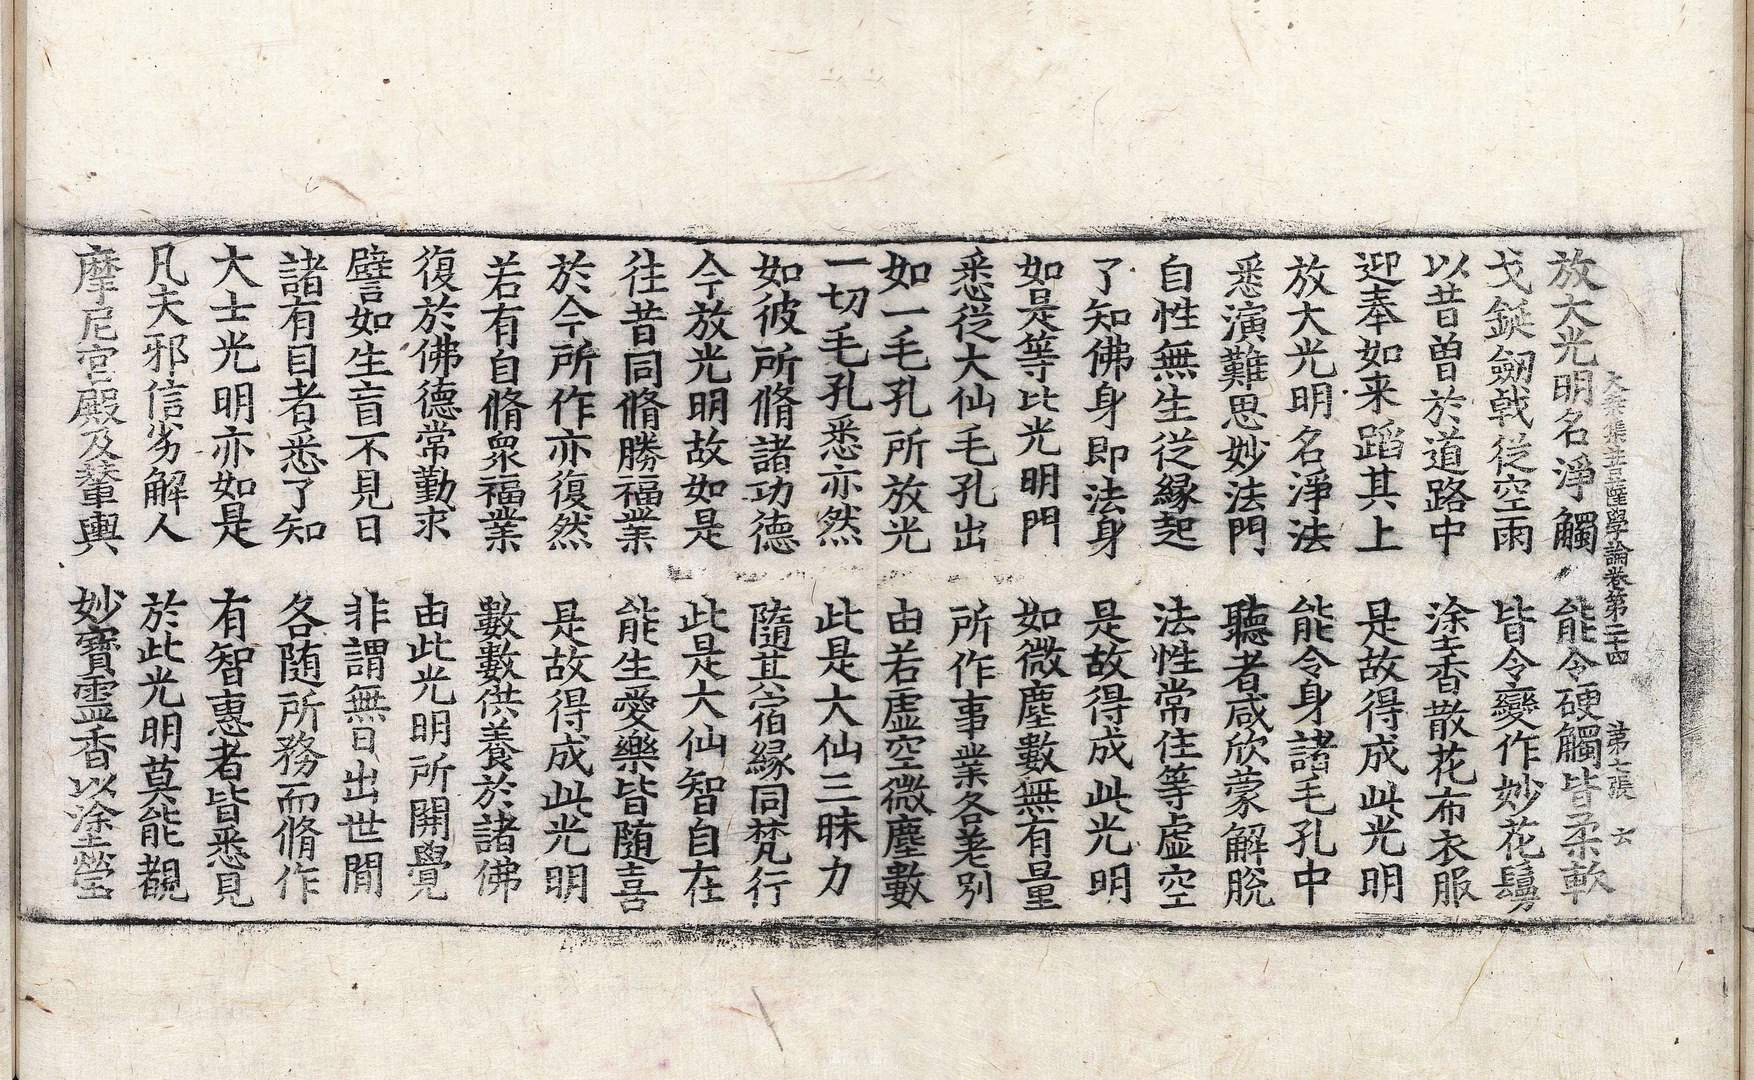 大乘集菩薩學論卷第二十四　第七張　六
放大光明名淨觸　能令硬觸皆柔軟
戈鋋劒戟從空雨　皆令變作妙花鬘
以昔曾於道路中　塗香散花布衣服
迎奉如来蹈其上　是故得成此光明
放大光明名淨法　能令身諸毛孔中
悉演難思妙法門　聽者咸欣蒙解脫
自性無生從緣起　法性常住等虛空
了知佛身即法身　是故得成此光明
如是等比光明門　如微塵數無有量
悉從大仙毛孔出　所作事業各差別
如一毛孔所放光　由若虛空微塵數
一切毛孔悉亦然　此是大仙三昧力
如彼所脩諸功德　隨其宿緣同梵行
今放光明故如是　此是大仙智自在
往昔同脩勝福業　能生愛樂皆隨喜
於今所作亦復然　是故得成此光明
若有自脩衆福業　數數供養於諸佛
復於佛德常勤求　由此光明所開覺
譬如生盲不見日　非謂無日出世間
諸有目者悉了知　各随所務而脩作
大士光明亦如是　有智惠者皆悉見
凡夫邪信劣解人　於此光明莫能覩
摩尼宮殿及輦輿　妙寶靈香以塗瑩